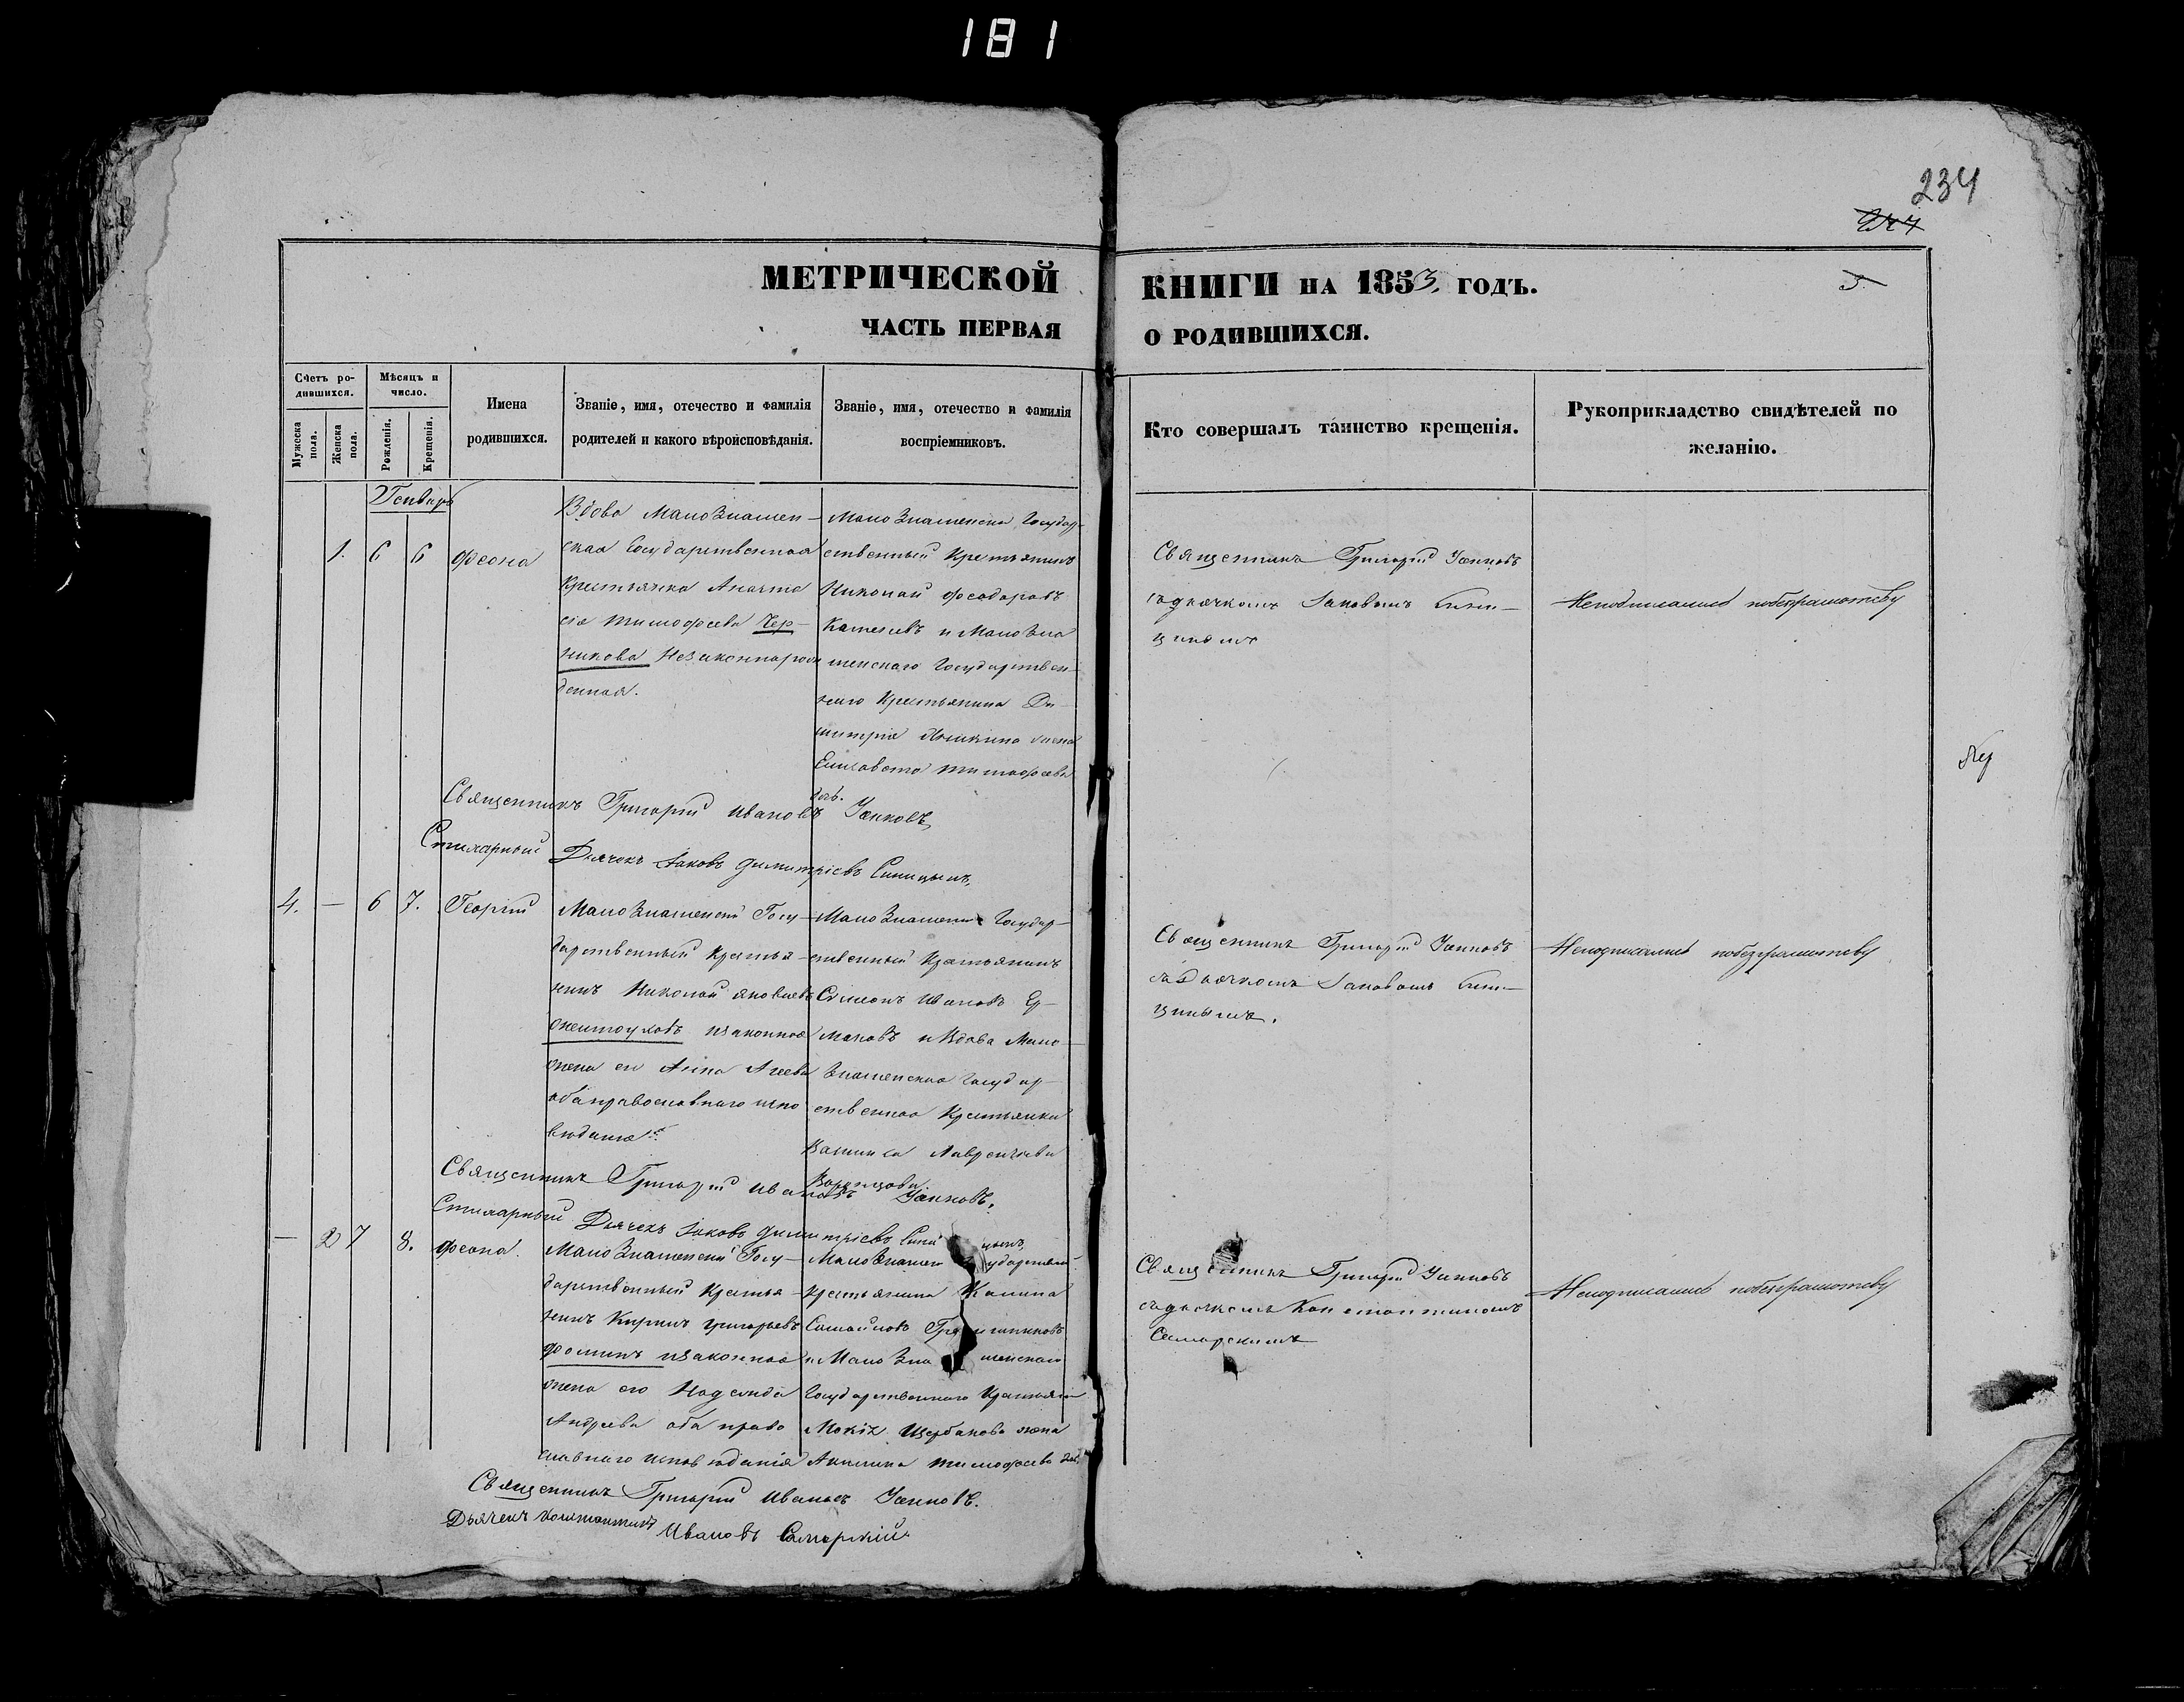 181
234
247
5
МЕТРИЧЕСКОЙ КНИГИ НА 1853. ГОДЪ.
ЧАСТЬ ПЕРВАЯ О РОДИВШИХСЯ.
Счетъ родившихся.
Мужеска пола.
Женска пола.
Мѣсяцъ и число.
Рожденія.
Крещенія.
Имена родившихся.
Званіе, имя, отечество и фамилія родителей и какого вѣроисповѣданія.
Званіе, имя, отечество и фамилія воспріемниковъ.
Кто совершалъ таинство крещенія.
Рукоприкладство свидѣтелей по желанію.
Генварь
1. 6 6 Феона
Вдова МалоЗнамен-
ская Государственная
Крестьянка Анаста
сіа Тимофеева Чер-
никова Незаконнорож
денная.
МалоЗнаменски Государ-
ственный Крестьянинъ
Николай Феодоровъ
и МалоЗна
менскаго Государствен-
наго Крестьянина Ди-
митрія жена
Елисавета Тимофеева
дочь.
Священникъ Григорій
съ дьячкомъ Іаковомъ Сини-
цинымъ
Неподписались побезграмотству
Священникъ Григорій Ивановъ
Дьячекъ Іаковъ Димитріевъ Синицынъ,
4. — 6 7. Георгій
МалоЗнаменскій Госу-
дарственный Крестья-
нинъ Николай Яковлевъ
изаконная
жена его Анна Агеева
оба православнаго испо
вѣданія
МалоЗнаменски Государ-
ственный Крестьянинъ
Симеонъ Ивановъ Ер-
маковъ и Вдова Мало-
Знаменская Государ-
ственная Крестьянка
Лаврентіева
Священникъ Григорій
съ Дьячкомъ Іаковомъ Сини-
цинымъ.
Неподписались побезграмотству
Священникъ Григорій Ивановъ
Дьячекъ Іаковъ Димитріевъ Сини цынъ,
— 2 7 8. Феона.
МалоЗнаменскій Госу-
дарственный Крестья-
нинъ Кирилъ Григорьевъ
Фоминъ изаконная
жена его Надежда
Андреева оба право
славнаго исповѣданія
МалоЗнамен ударствен
Крестьянина
Самойловъ
и МалоЗна менскаго
Государственнаго Крестьяни
Мокія Щербакова жена
Акилина Тимофеева доч.
Священникъ Григорій
съ дьячкомъ Константиномъ
Самарскимъ
Неподписались побезграмотству
Священникъ Григорій Ивановъ
Дьячекъ Константинъ Ивановъ Самарскій.